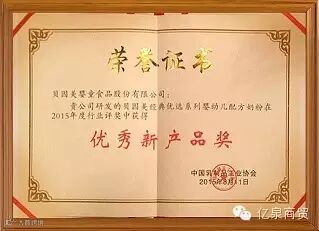 荣誉证书
贝因美婴童食品股份有限公司：
贵公司研发的贝因美经典优选系列婴幼儿配方奶粉在
2015年度行业评奖中获得
优秀新产品奖
中国乳制品工业协会
2015年8月11日
亿泉商贸